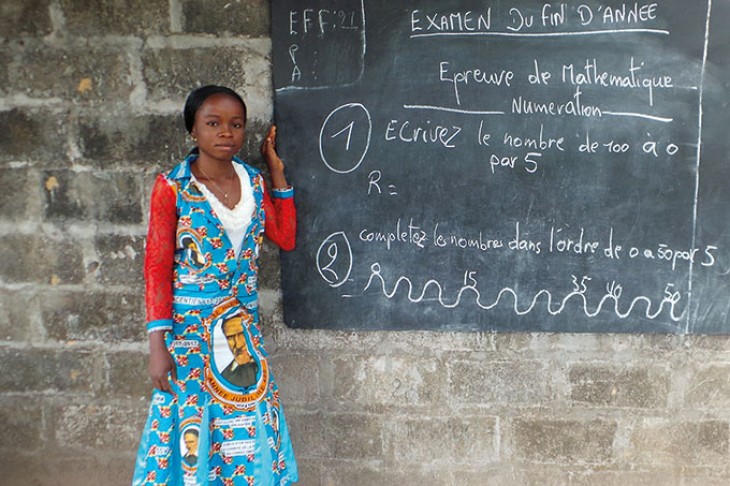 EFF: 21
P
A :
EXAMEN DU FIN D'ANNÉE
Epreuve de Mathématique
Numération
1 Ecrivez le nombre de 100 à 0
par 5
R =
2 completez les nombres dans l'ordre de 0 a 50 par 5
15 35 40 50
ANNÉE JUBILAIRE